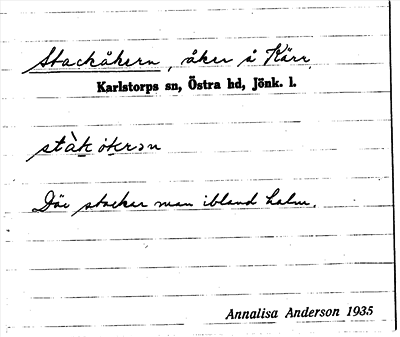 Stackåkern, åker å Kärr
Karlstorps sn, Östra hd, Jönk. l.
Där stackar man ibland halm.
Annalisa Anderson 1935